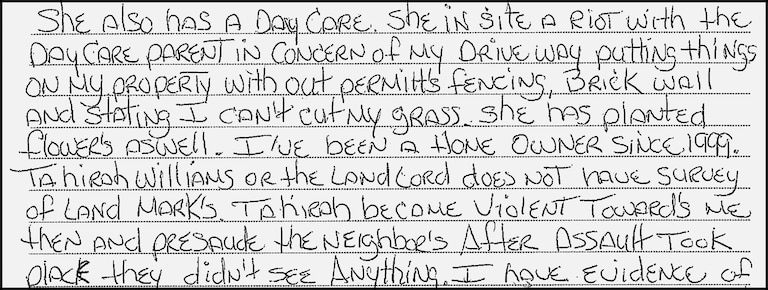 She also has a Day Care. She in site a Riot with the
Day Care parent in concern of my Drive way putting things
on my property with out permitt's fencing, Brick wall
and stating I can't cut my grass. She has planted
flower's aswell. I've been a Home owner since 1999.
Tahirah Williams or the Landlord does not have survey
of Land Mark's. Tahirah become Violent Toward's me
then and presaude the Neighbor's After Assault Took
place they didn't see Anything. I have evidence of